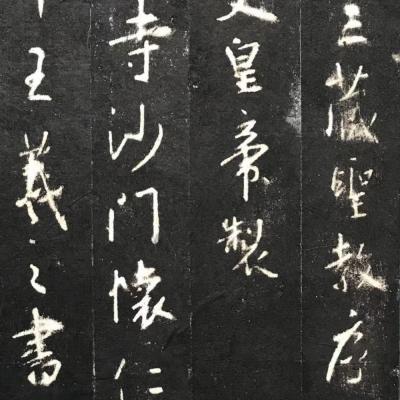 三藏聖教序
文皇帝製
寺沙門懷仁
王羲之書